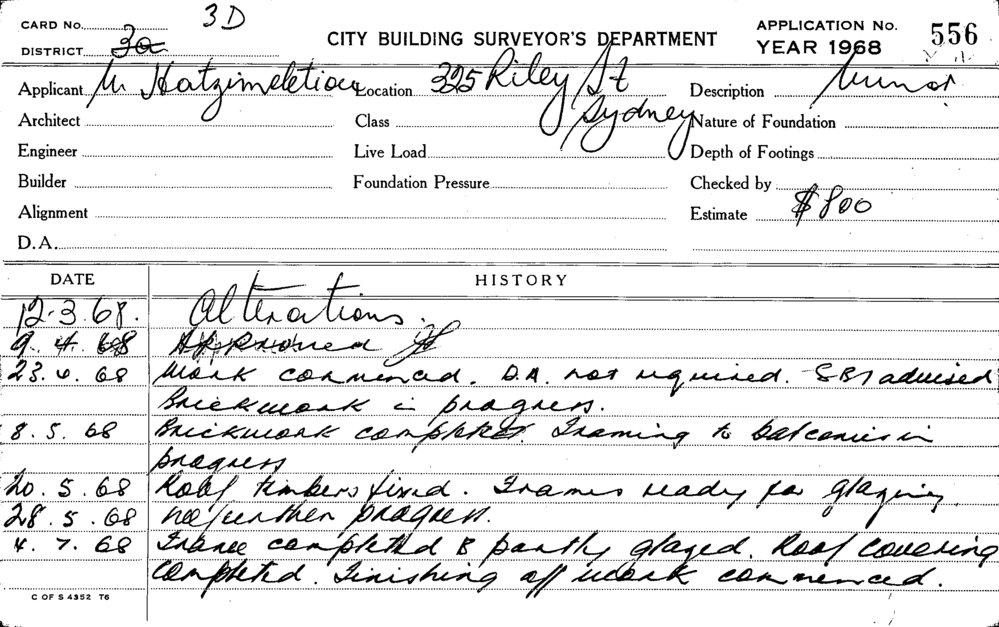 CARD No. 3D
DISTRICT 3a
CITY BUILDING SURVEYOR'S DEPARTMENT
APPLICATION No. 556
YEAR 1968
Applicant Location 325 Riley St
Sydney
Description
Architect Class Nature of Foundation
Engineer Live Load Depth of Footings
Builder Foundation Pressure Checked by
Alignment Estimate $800
D.A.
DATE HISTORY
12.3.68. Alterations.
9.4.68 Approved
23.4.68 Work commenced. D.A. not required. SBI advised
Brickwork in progress.
8.5.68 Brickwork completed. Framing to balconies in
progress
20.5.68 Roof timbers fixed. Frames ready for glazing
28.5.68 No further progress.
4.7.68 Frame completed & partly glazed. Roof covering
completed. Finishing off work commenced.
C OF S 4352 T6